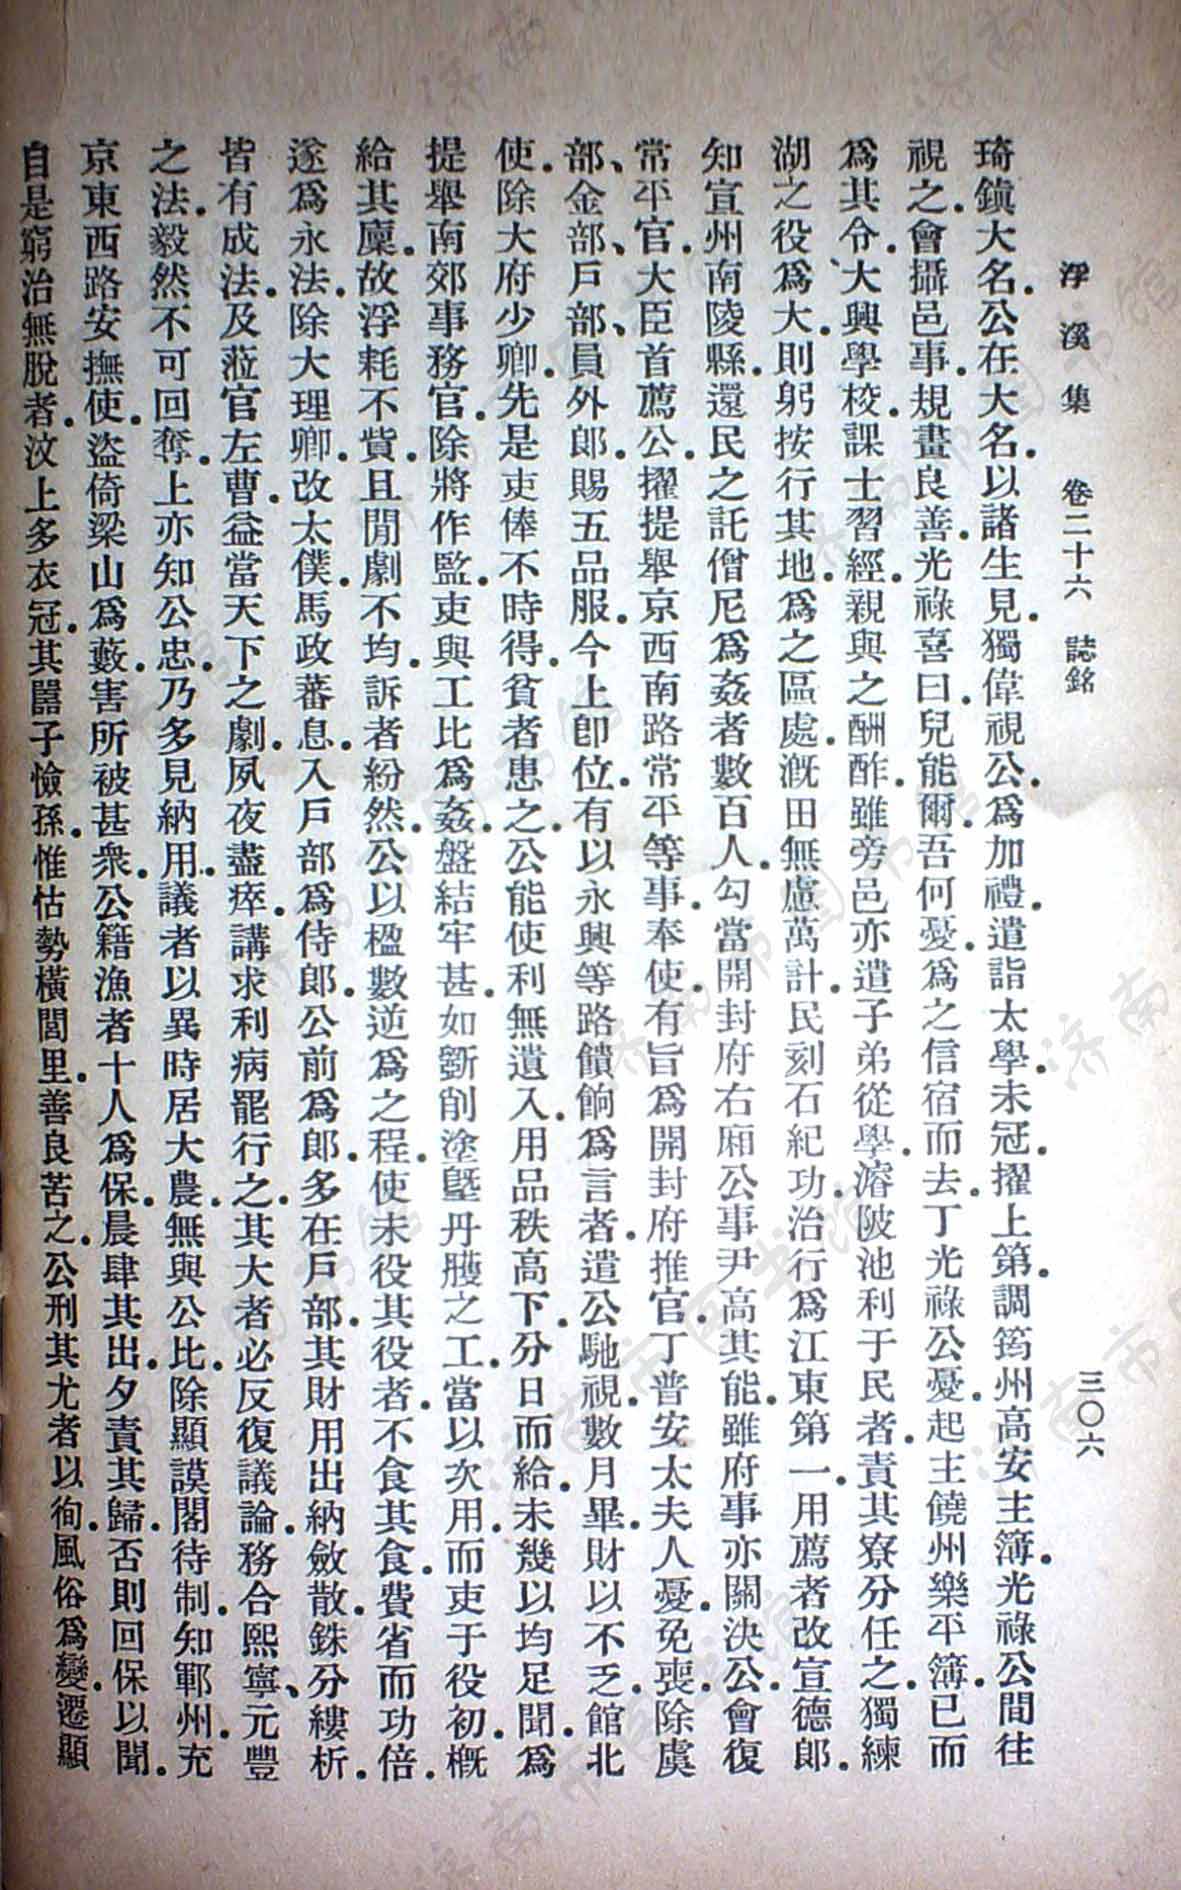 浮溪集 卷二十六 誌銘 三〇六
琦鎮大名.公在大名.以諸生見.獨偉視公.爲加禮.遣詣太學.未冠.擢上第.調筠州高安主簿.光祿公間往
視之.會攝邑事.規畫良善.光祿喜曰.兒能爾.吾何憂.爲之信宿而去.丁光祿公憂.起主饒州樂平簿.已而
爲其令.大興學校.課士習經.親與之酬酢.雖旁邑亦遣子弟從學.濬陂池利于民者.責其寮分任之.獨練
湖之役爲大.則躬按行其地.爲之區處.溉田無慮萬計.民刻石紀功.治行爲江東第一.用薦者改宣德郎.
知宣州南陵縣.還民之託僧尼爲姦者數百人.勾當開封府右廂公事.尹高其能.雖府事亦關決.公會復
常平官.大臣首薦公.擢提舉京西南路常平等事.奉使有旨.爲開封府推官.丁普安太夫人憂.免喪.除虞
部、金部、戶部、員外郎.賜五品服.今上卽位.有以永興等路饋餉爲言者.遣公馳視.數月畢.財以不乏.館北
使.除大府少卿.先是吏俸不時得.貧者患之.公能使利無遺入.用品秩高下.分日而給.未幾以均足聞.爲
提舉南郊事務官.除將作監.吏與工比爲姦.盤結牢甚.如斲削塗墍丹雘之工.當以次用.而吏于役初.槪
給其廩.故浮耗不貲.且閒劇不均.訴者紛然.公以楹數逆爲之程.使未役其役者.不食其食.費省而功倍.
遂爲永法.除大理卿.改太僕.馬政蕃息.入戶部爲侍郎.公前爲郎.多在戶部.其財用出納斂散.銖分縷析.
皆有成法.及蒞官左曹.益當天下之劇.夙夜盡瘁.講求利病罷行之.其大者必反復議論.務合熙寧、元豐
之法.毅然不可回奪.上亦知公忠.乃多見納用.議者以異時居大農.無與公比.除顯謨閣待制.知鄆州.充
京東西路安撫使.盜倚梁山爲藪.害所被甚衆.公籍漁者十人爲保.晨肆其出.夕責其歸.否則回保以聞.
自是窮治無脫者.汶上多衣冠.其嚚子憸孫.惟怙勢橫閭里.善良苦之.公刑其尤者以徇.風俗爲變.遷顯